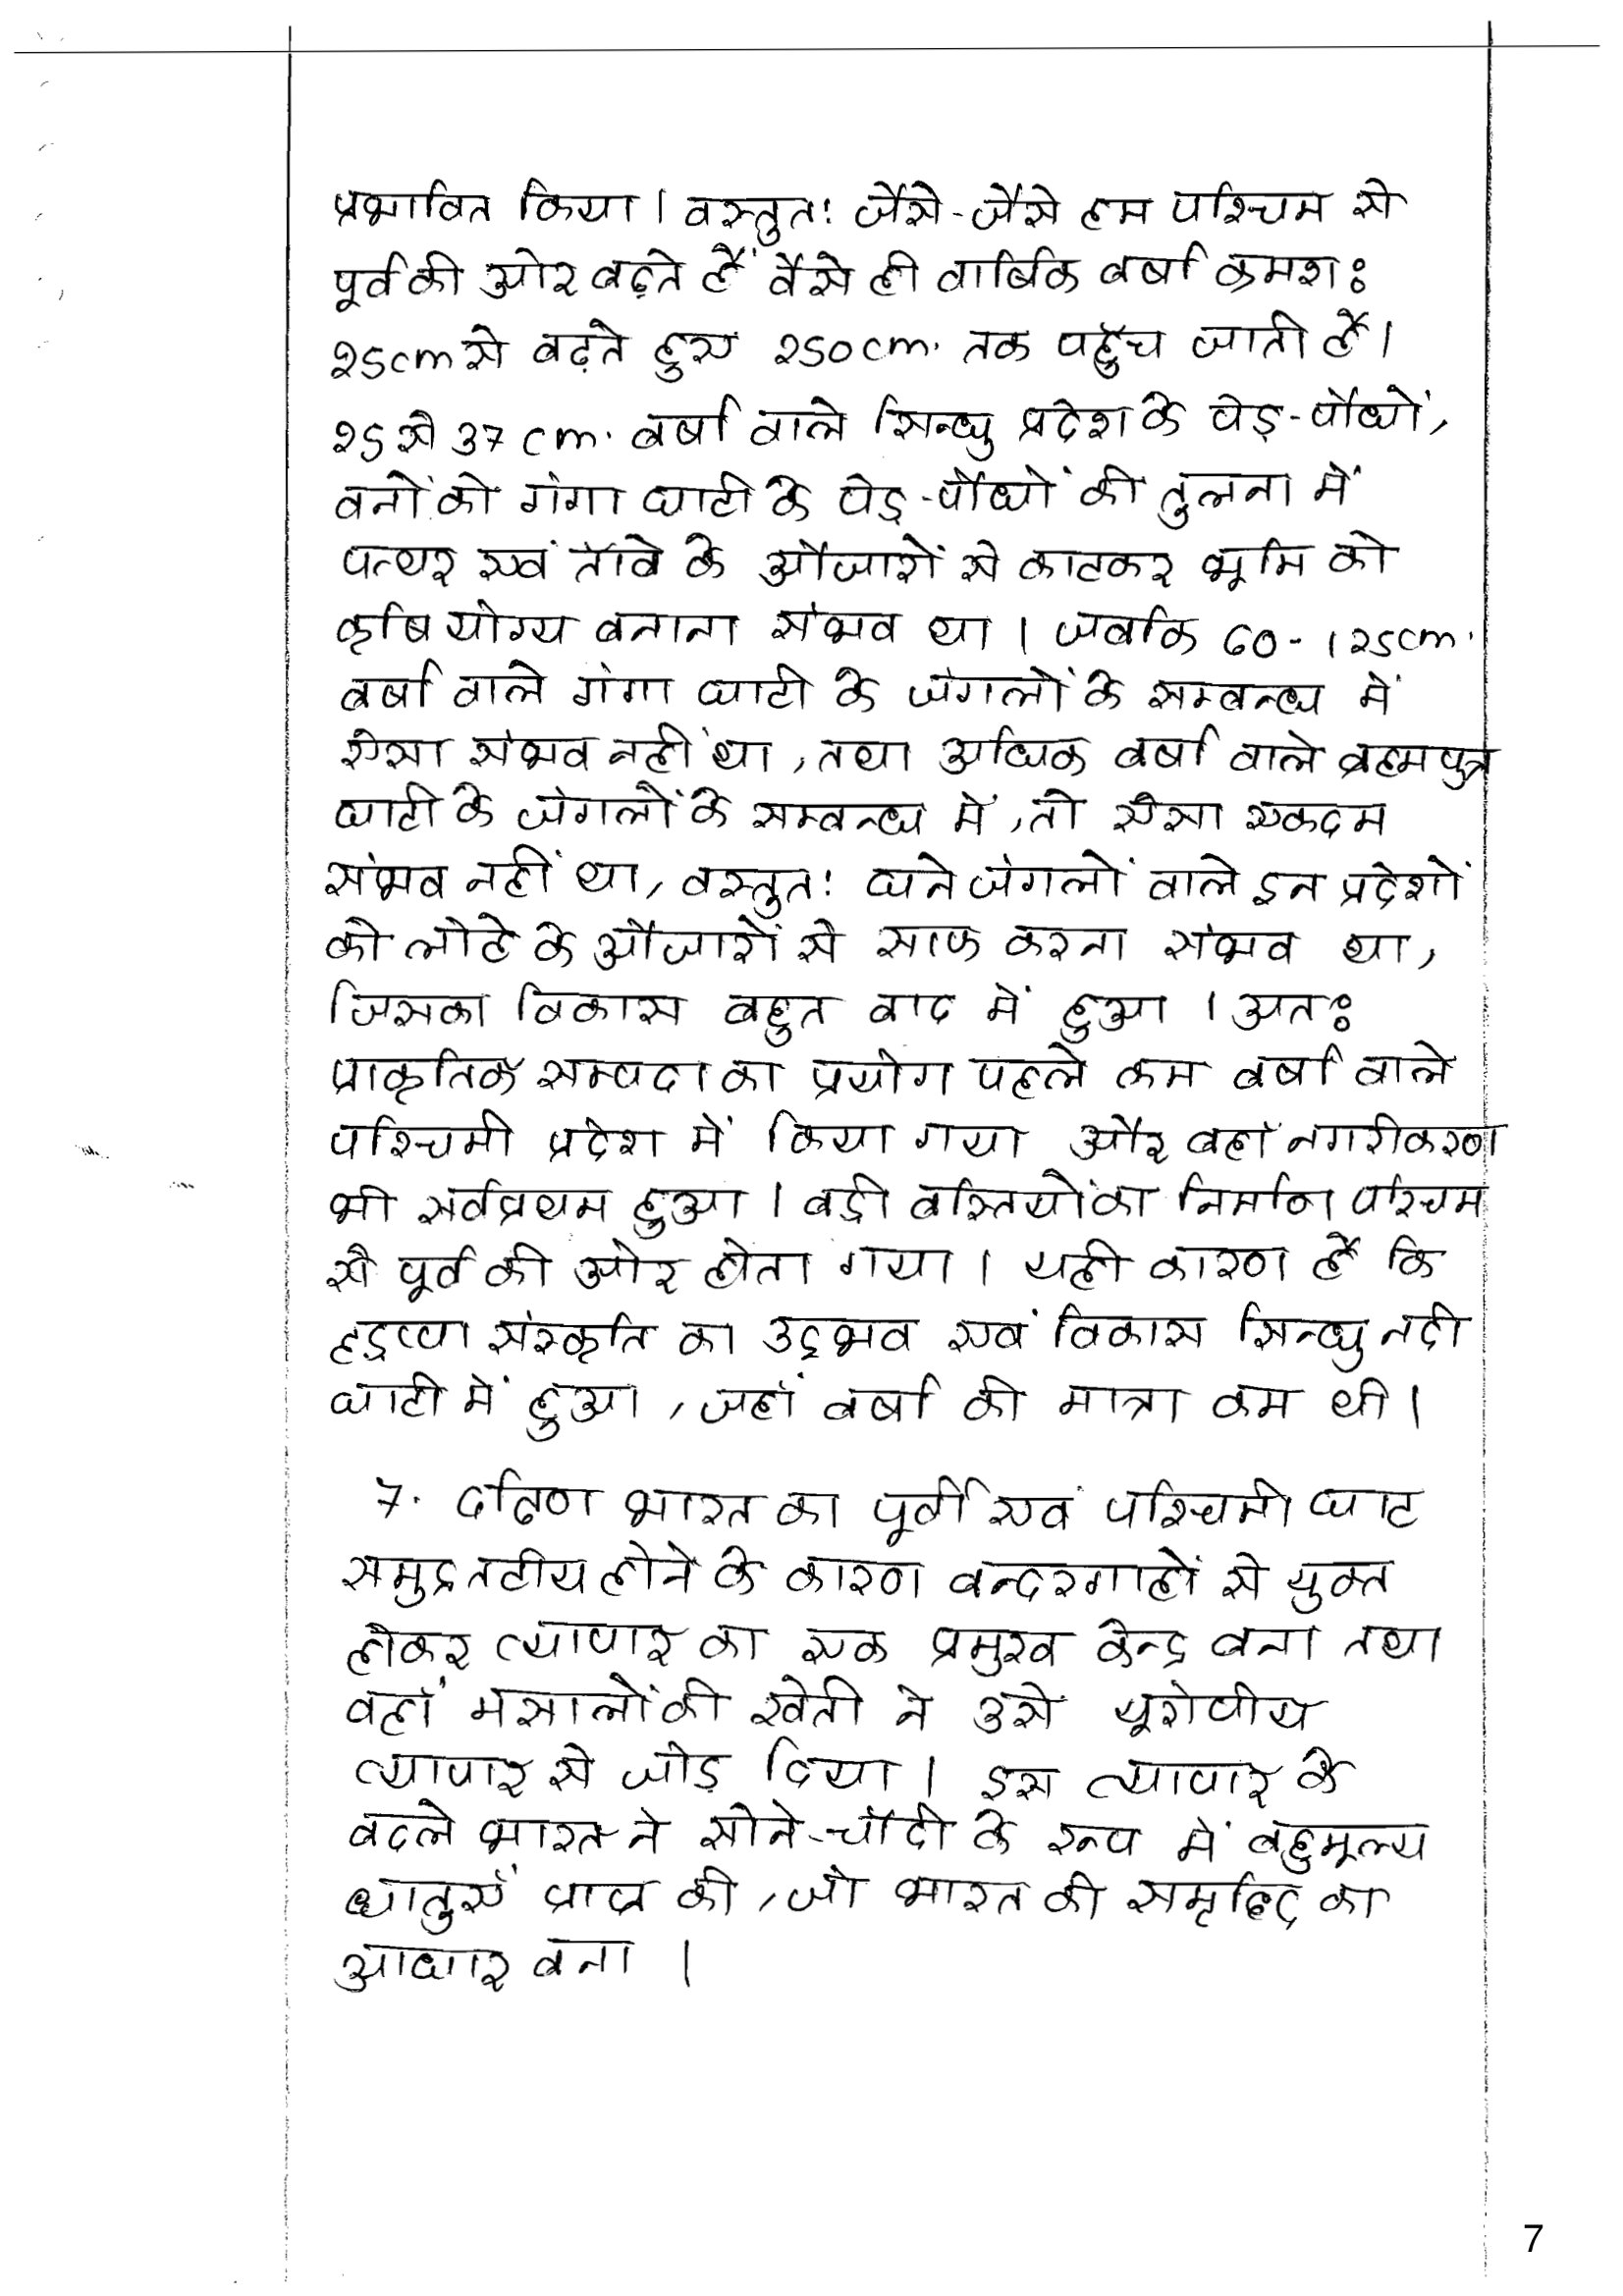 प्रभावित किया। वस्तुतः जैसे-जैसे हम पश्चिम से
पूर्व की ओर बढ़ते हैं वैसे ही वार्षिक वर्षा क्रमशः
25cm से बढ़ते हुए 250cm. तक पहुँच जाती है।
25 से 37 cm. वर्षा वाले सिन्धु प्रदेश के पेड़-पौधों,
वनों को गंगा घाटी के पेड़-पौधों की तुलना में
पत्थर एवं ताँबे के औजारों से काटकर भूमि को
कृषि योग्य बनाना संभव था। जबकि 60-125cm.
वर्षा वाले गंगा घाटी के जंगलों के सम्बन्ध में
ऐसा संभव नहीं था, तथा अधिक वर्षा वाले ब्रह्मपुत्र
घाटी के जंगलों के सम्बन्ध में, तो ऐसा एकदम
संभव नहीं था, वस्तुतः घने जंगलों वाले इन प्रदेशों
को लोहे के औजारों से साफ करना संभव था,
जिसका विकास बहुत बाद में हुआ। अतः
प्राकृतिक सम्पदा का प्रयोग पहले कम वर्षा वाले
पश्चिमी प्रदेश में किया गया और वहाँ नगरीकरण
भी सर्वप्रथम हुआ। बड़ी बस्तियों का निर्माण पश्चिम
से पूर्व की ओर होता गया। यही कारण है कि
हड़प्पा संस्कृति का उद्भव एवं विकास सिन्धु नदी
घाटी में हुआ, जहाँ वर्षा की मात्रा कम थी।
7. दक्षिण भारत का पूर्वी एवं पश्चिमी घाट
समुद्रतटीय होने के कारण बन्दरगाहों से युक्त
होकर व्यापार का एक प्रमुख केन्द्र बना तथा
वहाँ मसालों की खेती ने उसे यूरोपीय
व्यापार से जोड़ दिया। इस व्यापार के
बदले भारत ने सोने-चाँदी के रूप में बहुमूल्य
धातुएँ प्राप्त की, जो भारत की समृद्धि का
आधार बना।
7